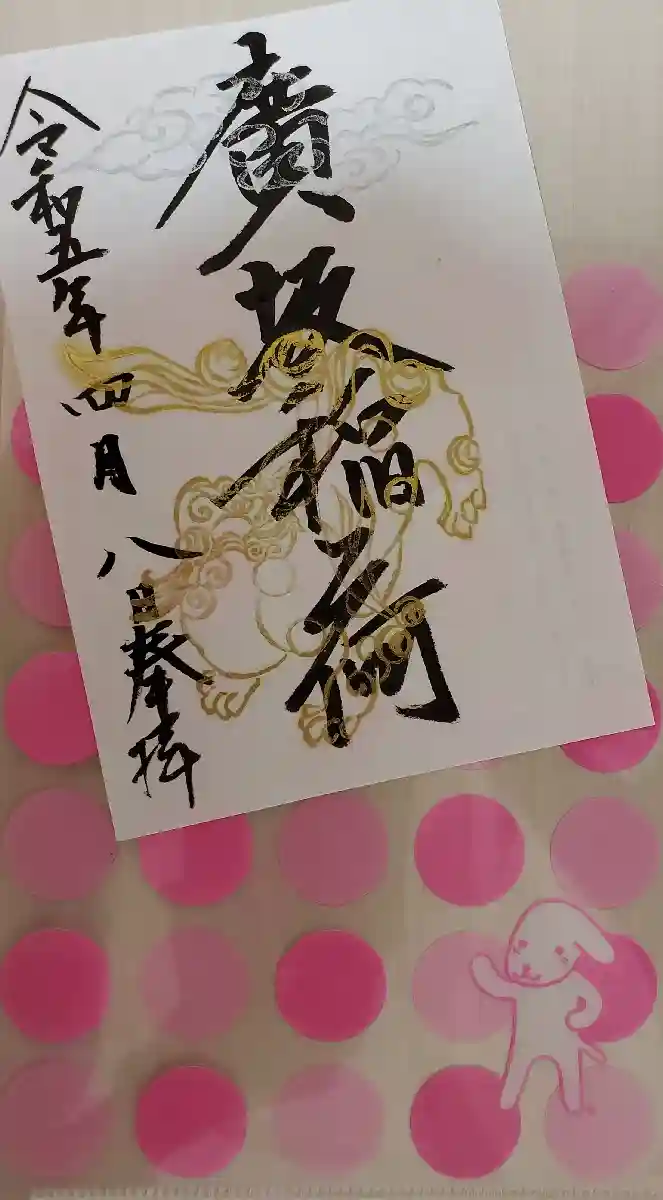 廣坂稲荷
令和五年四月八日奉拝